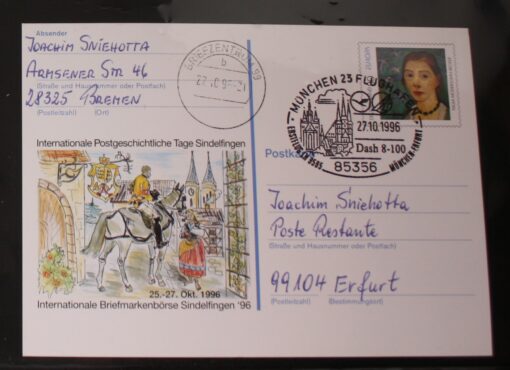 Absender
Joachim Sniehotta
Armsener Str 46
(Straße und Hausnummer oder Postfach)
28325 Bremen
(Postleitzahl) (Ort)
BRIEFZENTRUM 99
b
MÜNCHEN 23 FLUGHAFEN
27.10.1996
Dash 8-100
85356
MÜNCHEN-ERFURT
Internationale Postgeschichtliche Tage Sindelfingen
25.-27. Okt. 1996
Internationale Briefmarkenbörse Sindelfingen '96
Postkarte
Joachim Sniehotta
Poste Restante
(Straße und Hausnummer oder Postfach)
99104 Erfurt
(Postleitzahl) (Bestimmungsort)